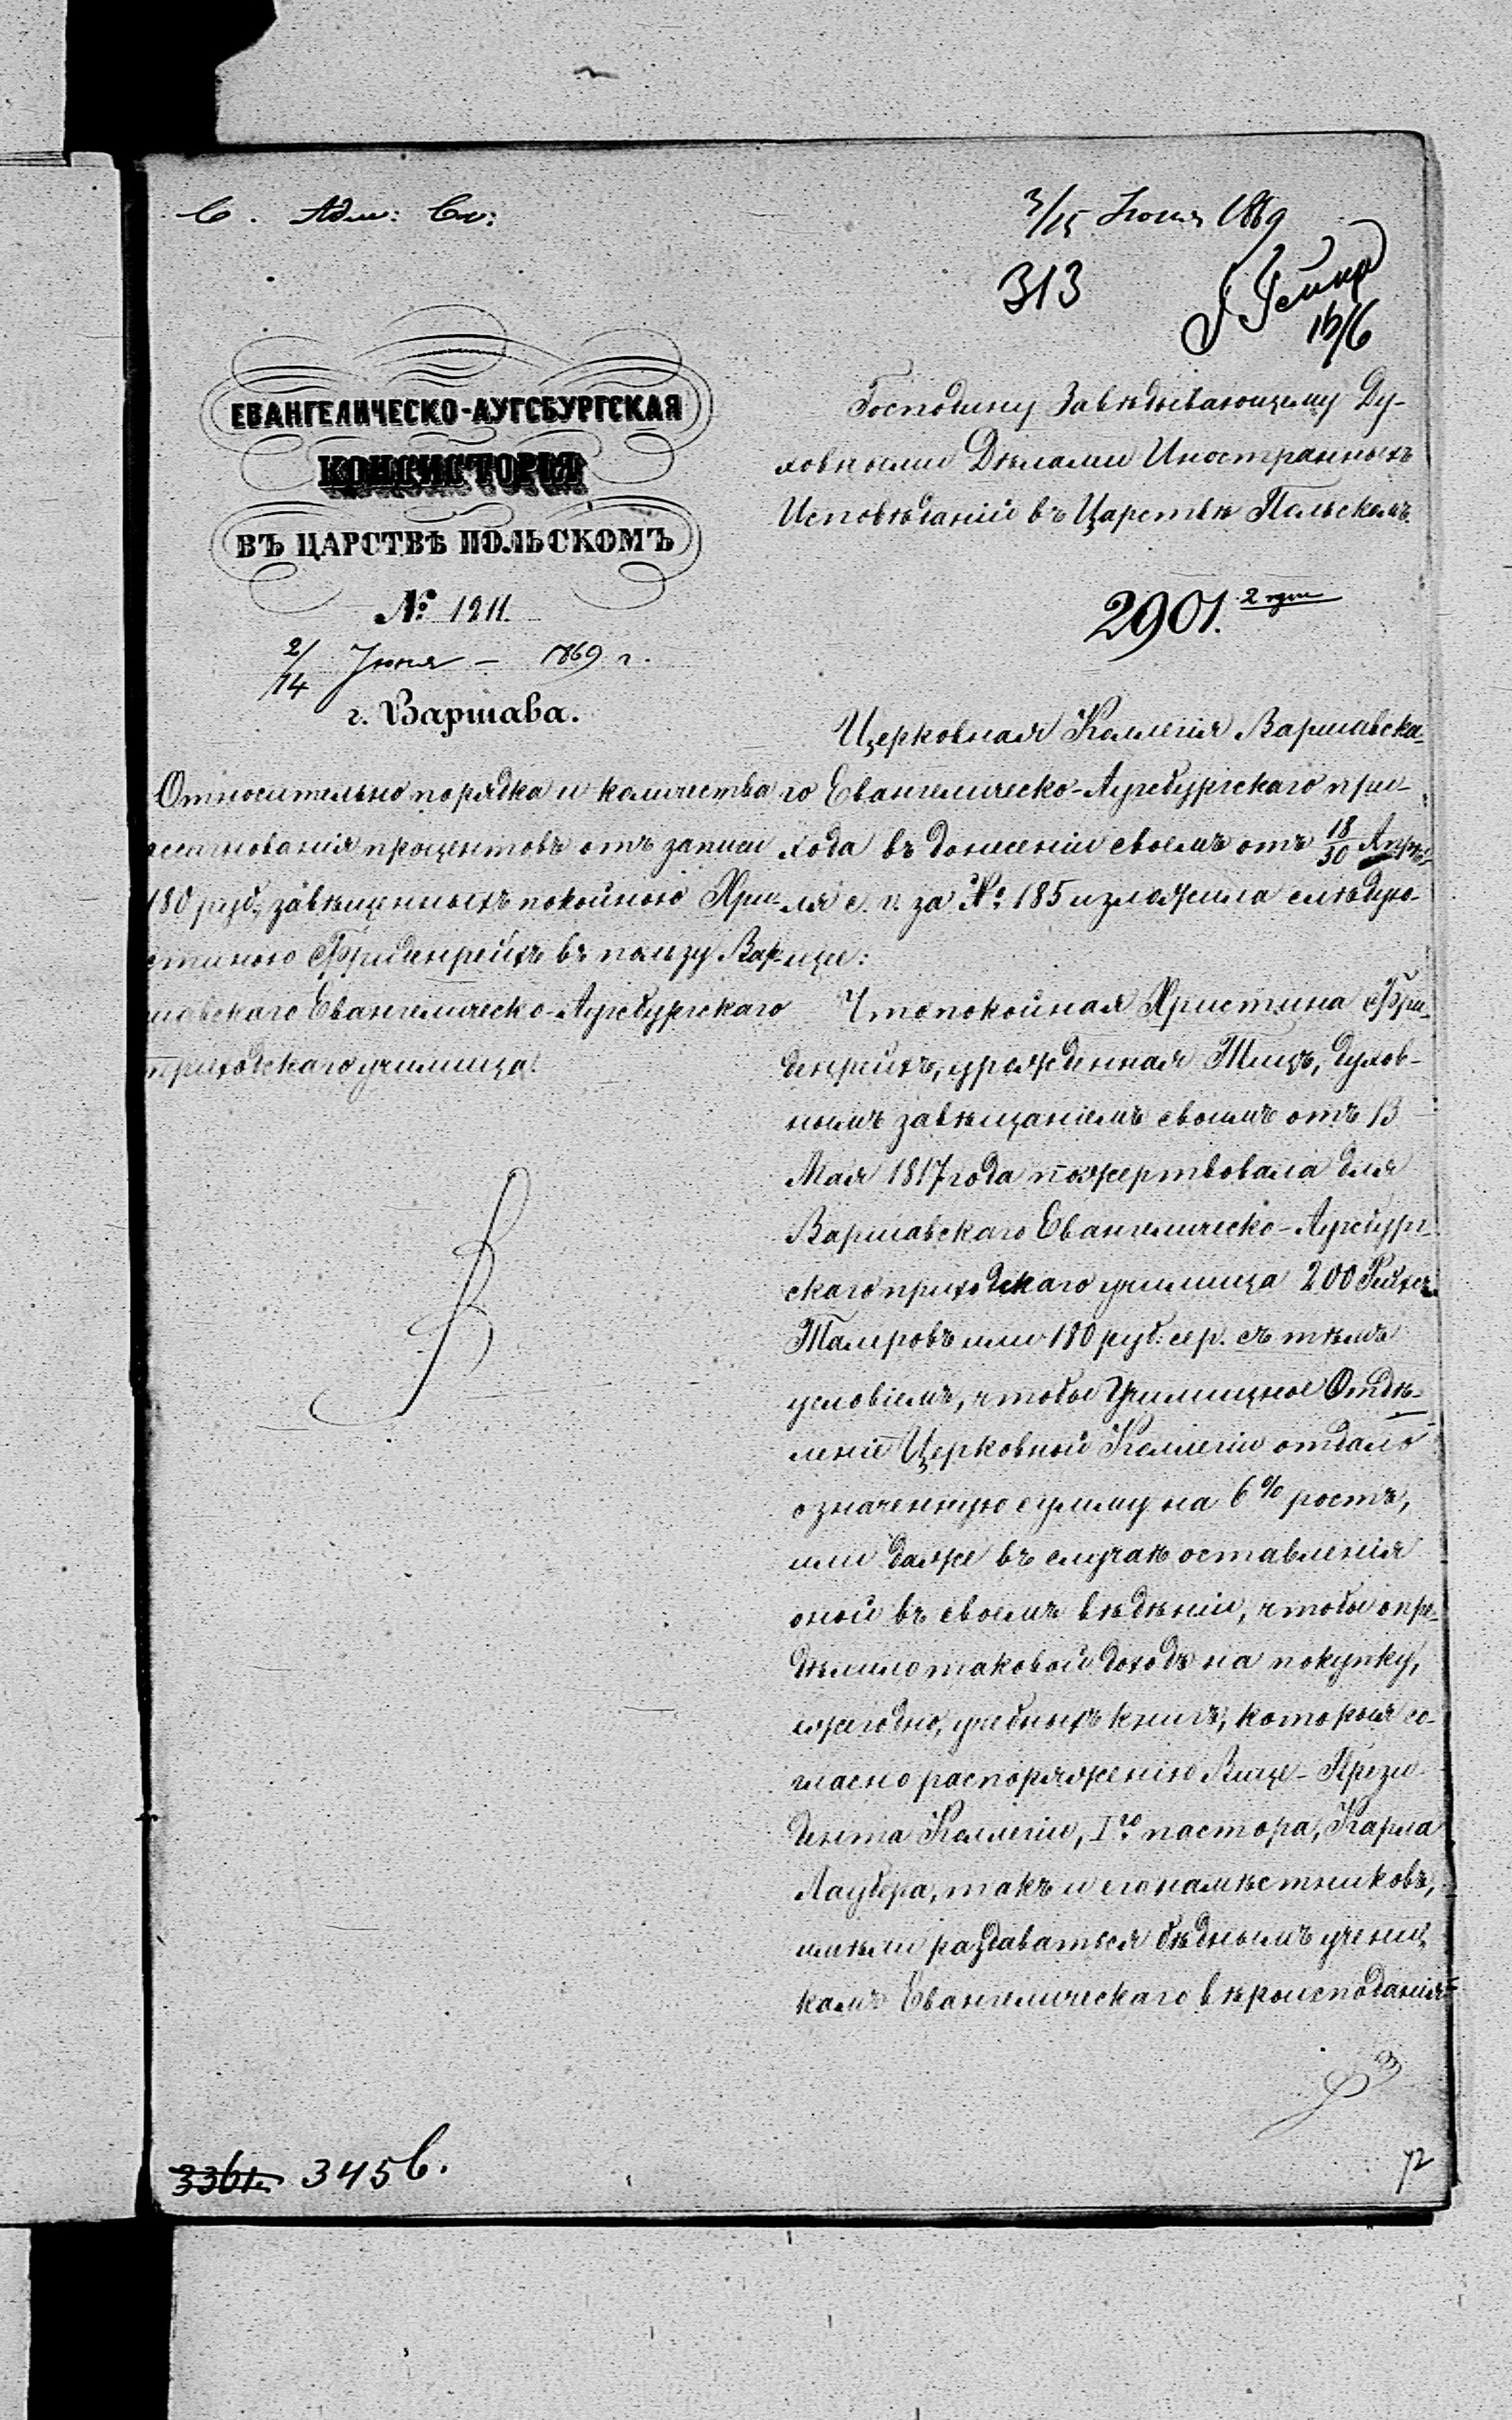 С. Адм: Ст:
3/15 Июня 1869
313
15/6
ЕВАНГЕЛИЧЕСКО-АУГСБУРГСКАЯ
КОНСИСТОРІЯ
ВЪ ЦАРСТВѢ ПОЛЬСКОМЪ
№ 1211.
2/14 Іюня – 1869 г.
г. Варшава.
Относительно порядка и количества
ассигнованія процентовъ отъ записи
180 руб., завѣщанныхъ покойною Хри-
стиною Фриденрейхъ въ пользу Вар-
шавскаго Евангелическо-Аугсбургскаго
приходскаго училища.
Господину Завѣдывающему Ду-
ховными Дѣлами Иностранныхъ
Исповѣданій въ Царствѣ Польскомъ.
2901.
Церковная Коллегія Варшавска-
го Евангелическо-Аугсбургскаго при-
хода въ донесеніи своемъ отъ 18/30 Апрѣ-
ля с. г. за № 185 изложила слѣдую-
щее:
Что покойная Христина Фри-
денрейхъ, урожденная Тицъ, духов-
нымъ завѣщаніемъ своимъ отъ 13
Мая 1817 года пожертвовала для
Варшавскаго Евангелическо-Аугсбург-
скаго приходскаго училища 200 Рейхсъ
Талеровъ или 180 руб. сер. съ тѣмъ
условіемъ, чтобы Училищное Отдѣ-
леніе Церковной Коллегіи отдало
означенную сумму на 6% ростъ,
или даже въ случаѣ оставленія
оной въ своемъ вѣдѣніи, чтобы опре-
дѣлило таковой доходъ на покупку,
ежегодно, учебныхъ книгъ, которыя со-
гласно распоряженію Вице-Прези-
дента Коллегіи, Iго пастора, Карла
Лаубера, такъ и его намѣстниковъ,
имѣли раздаваться бѣднымъ учени-
камъ Евангелическаго вѣроисповѣданія
3361. 3456.
72